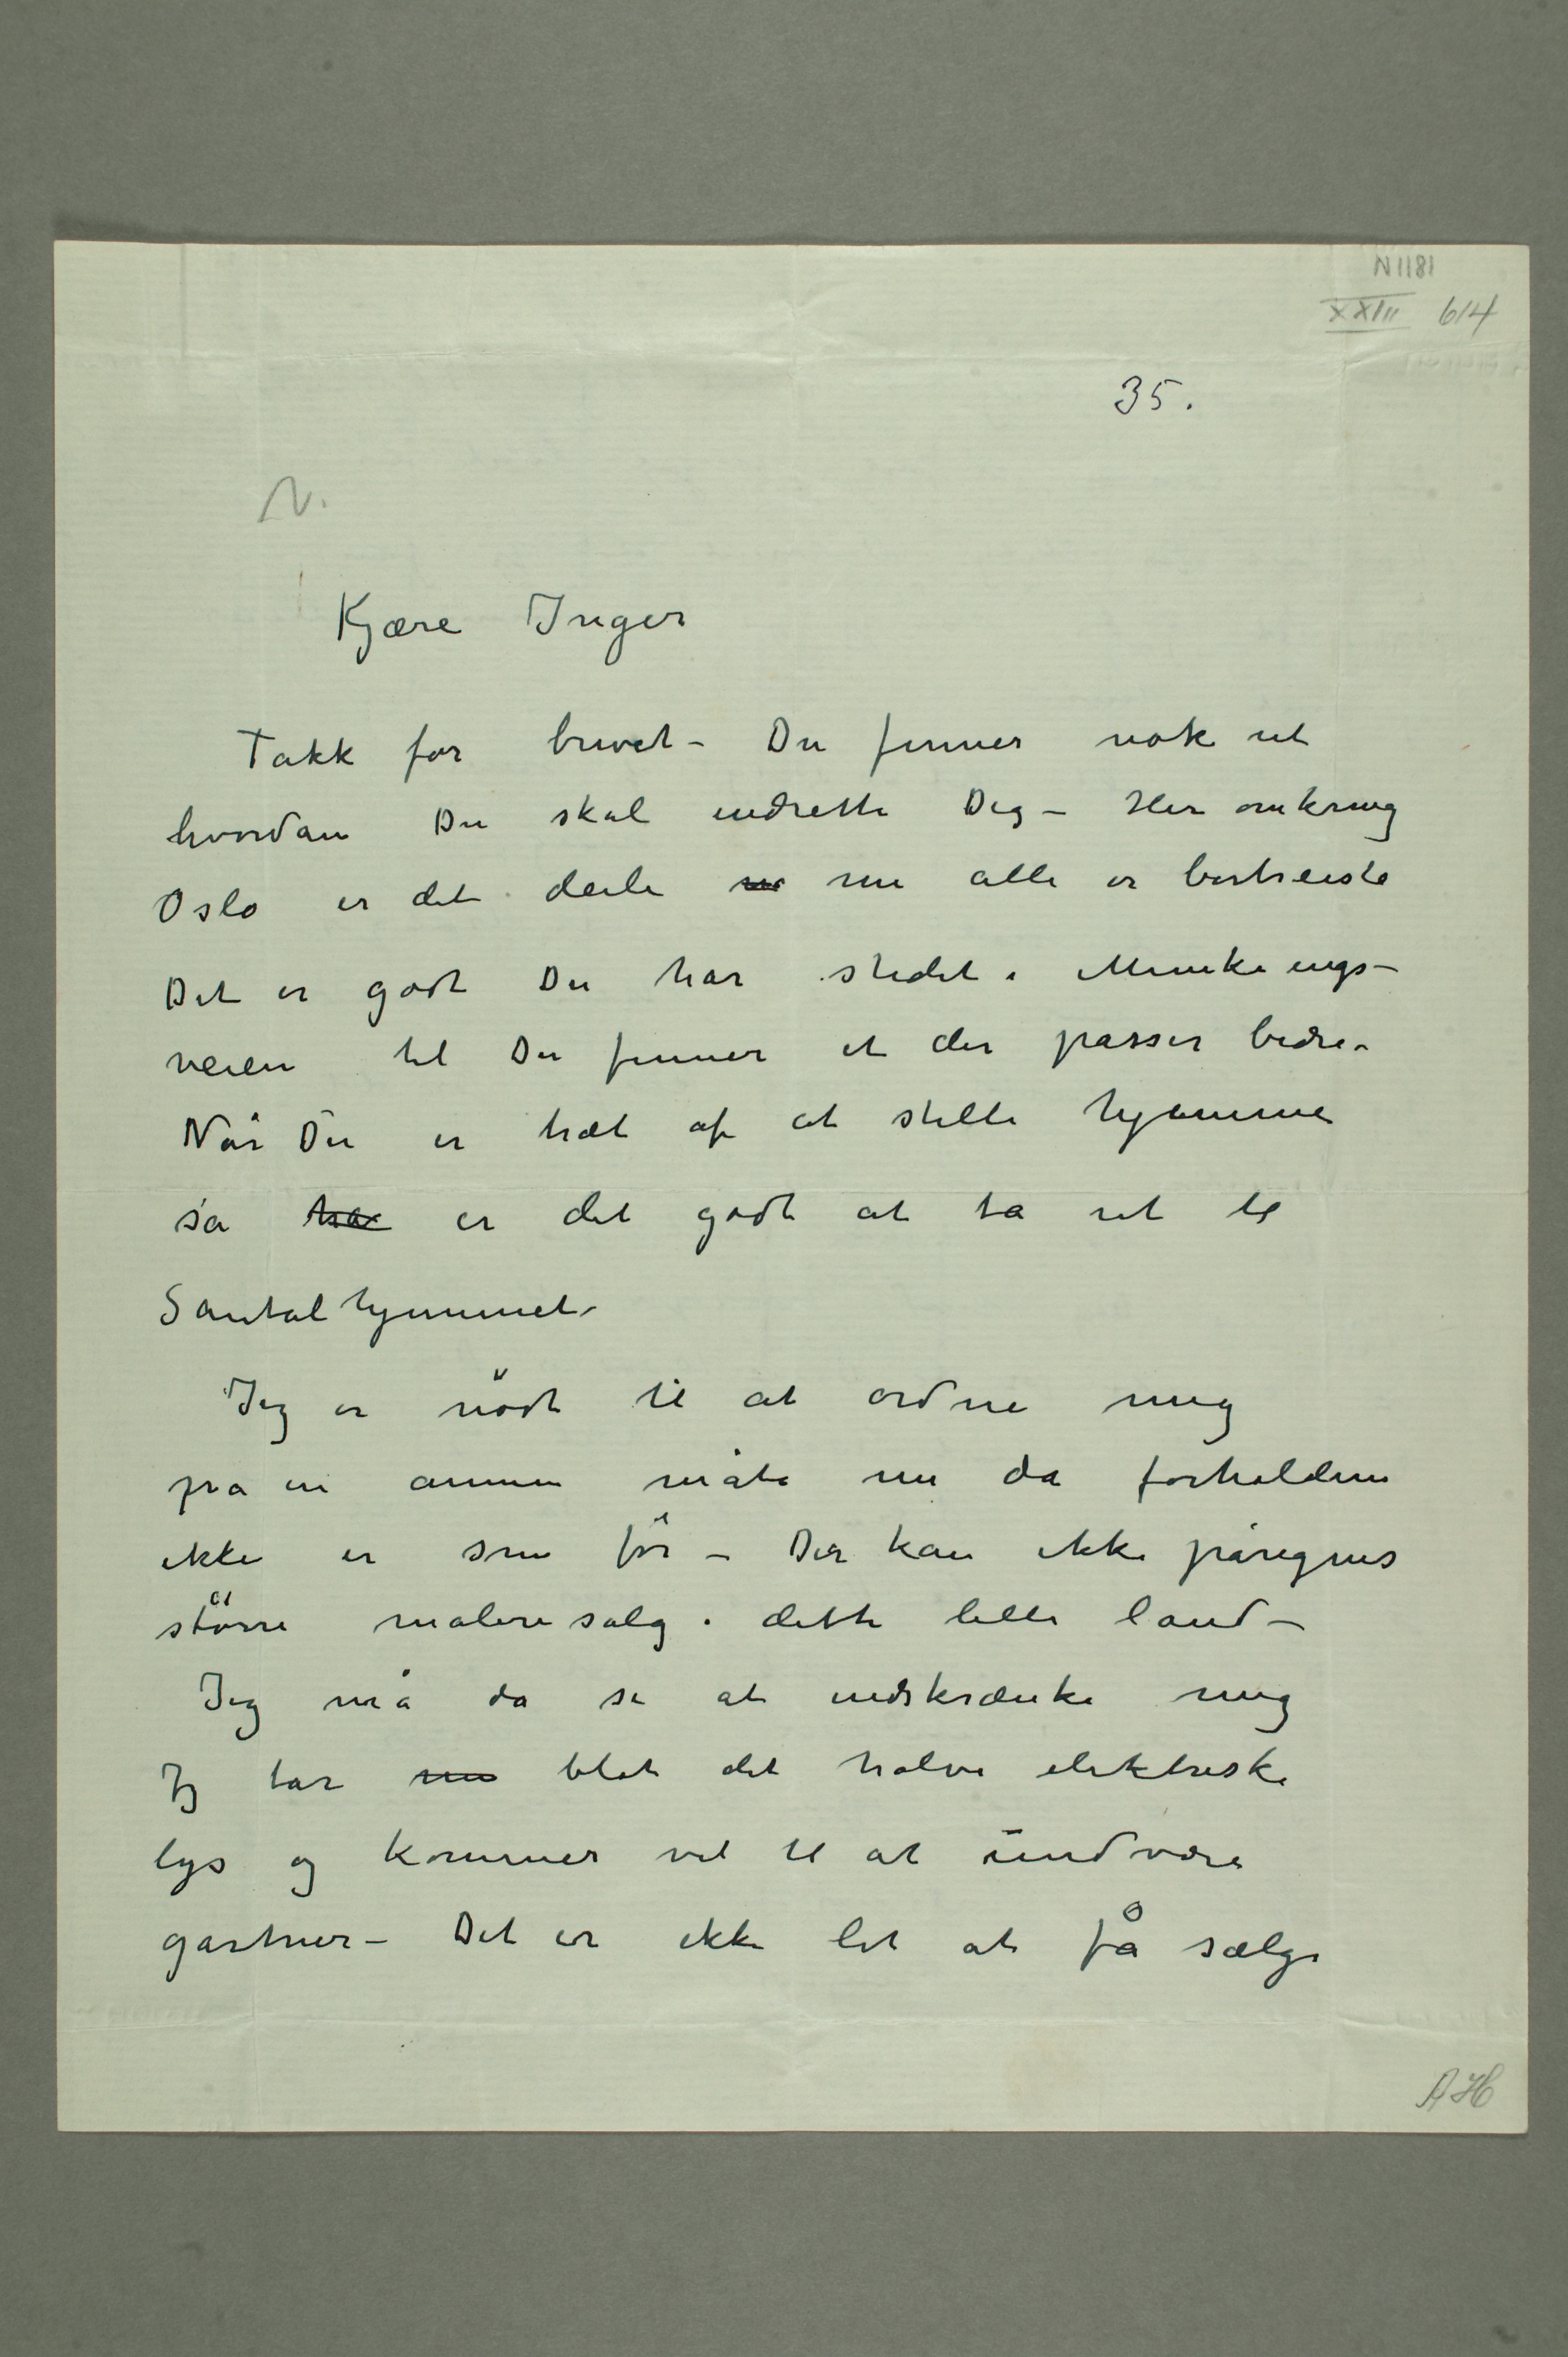 N 1181
XXIII 614
35.
N.
Kjære Inger
Takk for brevet – Du finner nok ut
hvordan Du skal indrette Dig – Her omkring
Oslo er det deili nu alle er bortreiste
Det er godt Du har stedet i Munkeengs-
veien til Du finner et der passer bedre –
Når Du er træt af at stelle hjemme
så har er det godt at ta ut til
Santalhjemmet –
Jeg er nödt til at ordne mig
på en annen måte nu da forholdene
ikke er som för – Der kan ikke påregnes
större malerisalg i dette lille land –
Jeg må da se at indskrænke mig
Jeg tar nu blot det halve elektriske
lys og kommer vel til at undvære
gartner – Det er ikke let at få sælge
AH